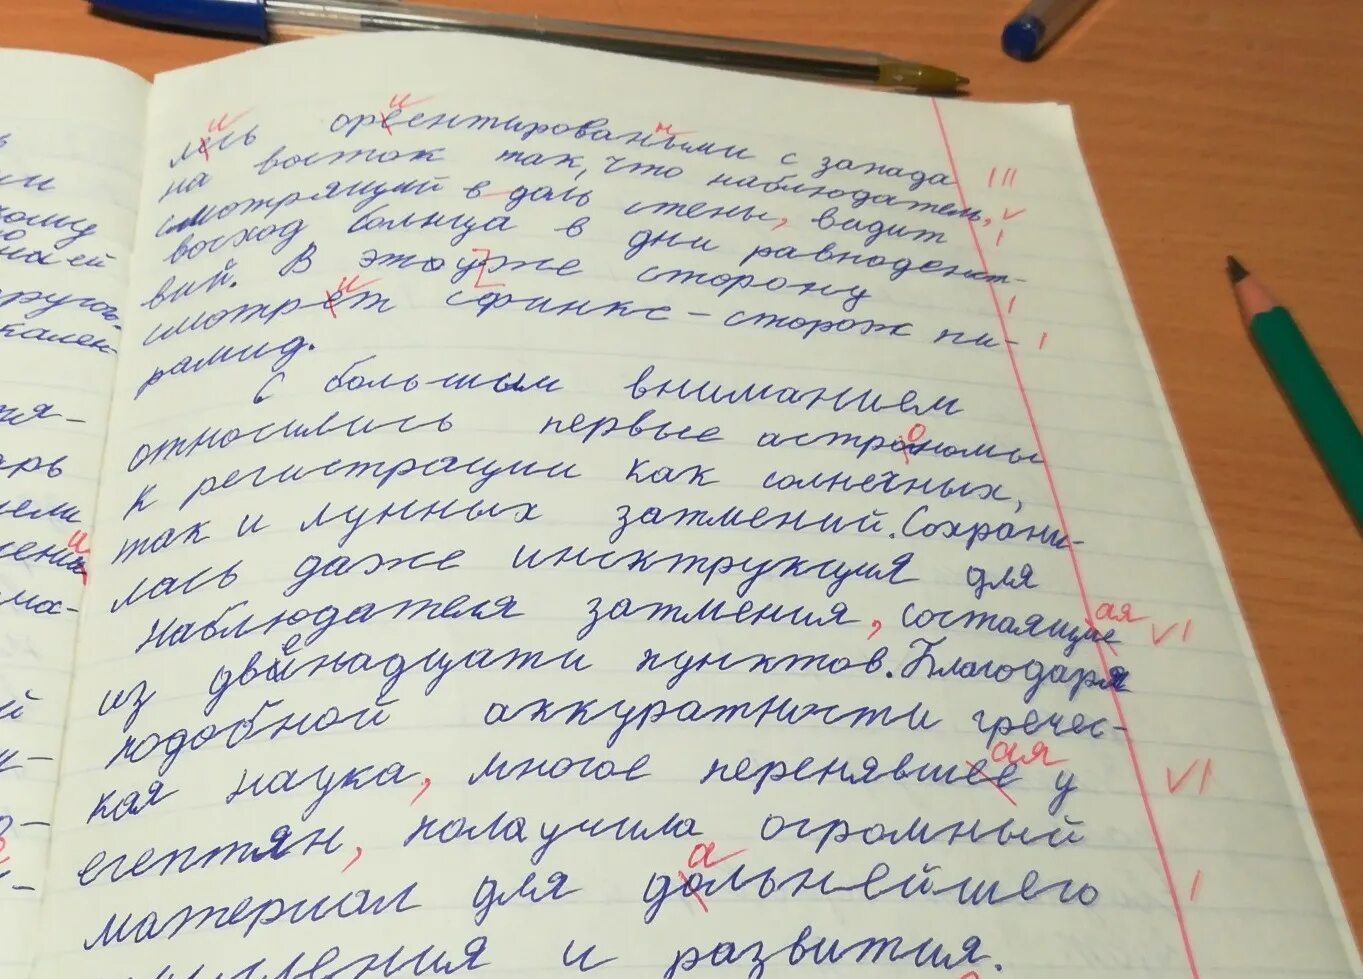 лись ориентированными с запада
на восток так, что наблюдатель,
смотрящий в даль стены, видит
восход солнца в дни равноденст-
вий. В эту же сторону
смотрит сфинкс - сторож пи-
рамид.
С большим вниманием
относились первые астрономы
к регистрации как солнечных,
так и лунных затмений. Сохрани-
лась даже инструкция для
наблюдателя затмения, состоящая
из двенадцати пунктов. Благодаря
подобной аккуратности гречес-
кая наука, многое перенявшая у
егептян, полаучила огромный
материал для дальнейшего
и развития.